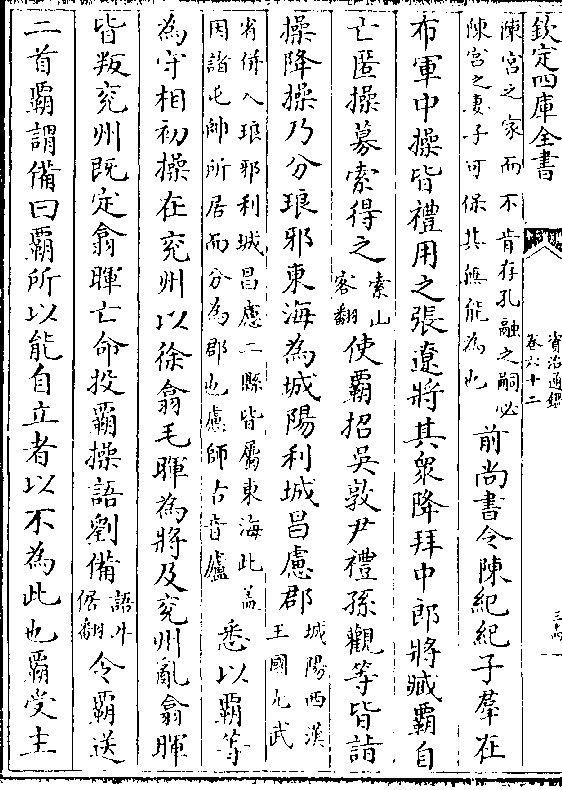 欽定四庫全書
資治通鑑
卷六十二
陳宮之家而不肯存孔融之嗣必
陳宮之妻子可保其無能為也
前尚書令陳紀紀子羣在
布軍中操皆禮用之張遼將其衆降拜中郎將臧霸自
亡匿操募索得之
索山
客翻
使霸招吳敦尹禮孫觀等皆詣
操降操乃分琅邪東海為城陽利城昌慮郡
城陽西漢
王國光武
省併入琅邪利城昌慮二縣皆屬東海此盖
因諸屯帥所居而分為郡也慮師古音廬
悉以霸等
為守相初操在兗州以徐翕毛暉為將及兗州亂翕暉
皆叛兗州既定翕暉亡命投霸操語劉備
語牛
倨翻
令霸送
二首霸謂備曰霸所以能自立者以不為此也霸受主